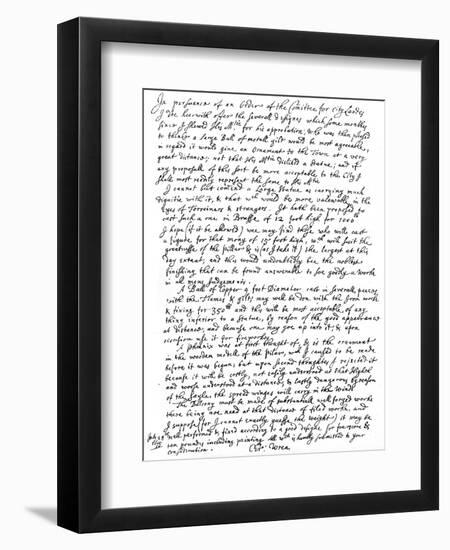 In pursuance of an Order of the Comittee for City Landes
I doe heerwith offer the severall designes which some monthes
since I shewed His Mtie for his approbation, who was then pleased
to thinke a large Ball of metall gilt would be most agreeable,
in regard it would give an Ornament to the Town at a very
great distance; not that His Mtie disliked a Statue; and if
any proposall of this sort be more acceptable to the City I
shall most readily represent the same to His Mtie
I cannot but comend a Large Statue as carrying much
dignitie with it, & that wch would be more valewable in the
Eyes of Forreiners & strangers. It hath been proposed to
cast such a one in Brasse of 12 foot high for 1000lb
I hope (if it be allowed) wee may find those who will cast
a figure for that mony of 15 foot high, wch will suit the
greatnesse of the pillar & is (as I take it) the largest at this
day extant; and this would undoubtedly bee the noblest
finishing that can be found answerable to soe goodly a worke
in all mens Judgements.
A Ball of Copper, 9 foot Diameter cast in severall peeces
with the Flames & gilt, may well be don with the Iron worke
& fixing for 350lb and this will be most acceptable of any
thing inferior to a Statue, by reason of the good appearance
at distance, and because one may goe up into it; & upon
occasion use it for fireworks.
A phœnix was at first thought of; & is the ornament
in the wooden modell of the pillar, wch I caused to be made
before it was begun; but upon second thoughtes I rejected it
because it will be costly, not easily understood at that Highth
and worse understood at a distance; & lastly dangerous by reason
of the sayle the spread winges will carry in the Winde
The Balcony must be made of substantiall well forged worke
there being noe need at that distance of filed worke, and
I suppose (for I cannot exactly guesse the weight) it may be
well performed & fixed according to a good designe for fourscore &
ten pounds including painting. All wch is humbly submitted to your
consideration.
July 28
Chr. Wren